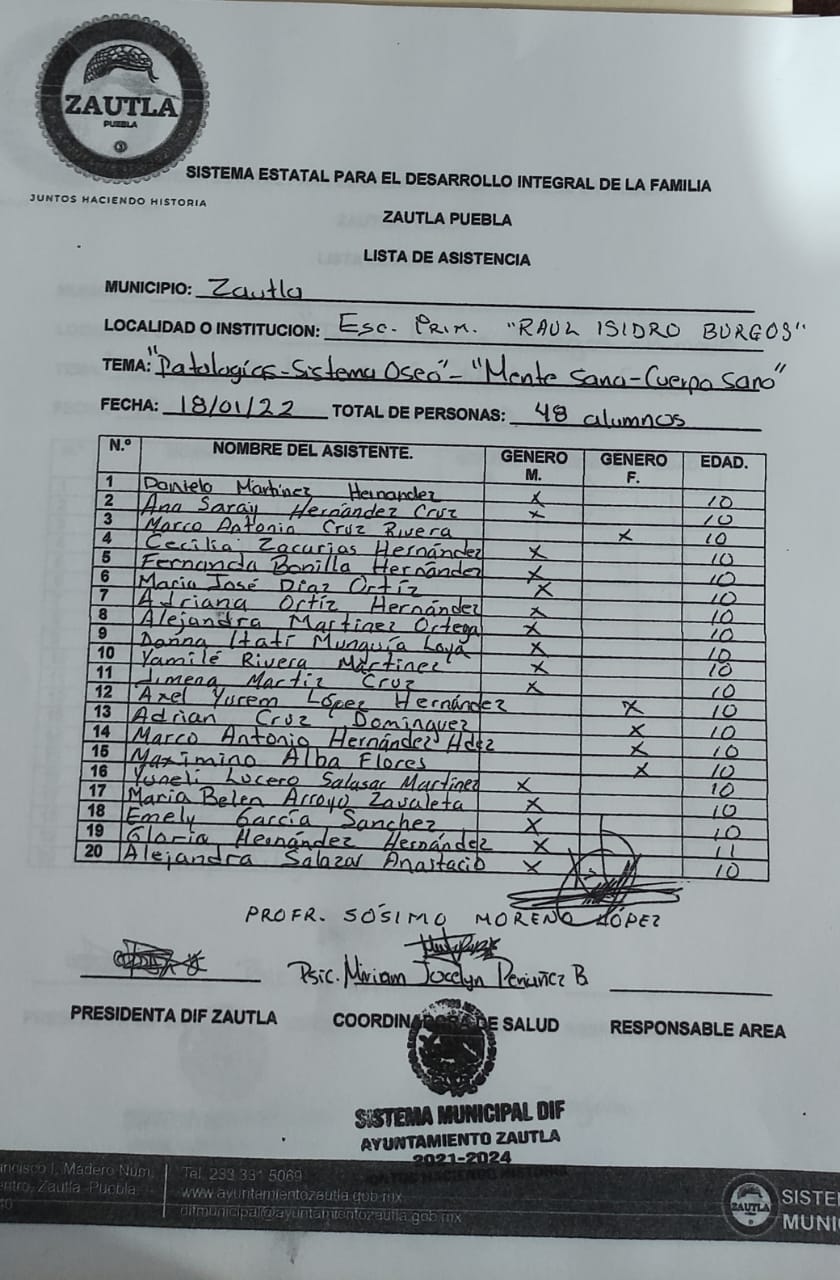 ZAUTLA
PUEBLA
JUNTOS HACIENDO HISTORIA
SISTEMA ESTATAL PARA EL DESARROLLO INTEGRAL DE LA FAMILIA
ZAUTLA PUEBLA
LISTA DE ASISTENCIA
MUNICIPIO: Zautla
LOCALIDAD O INSTITUCION: Esc. Prim. "RAUL ISIDRO BURGOS"
TEMA: "Patologías-Sistema Oseo"-"Mente Sana-Cuerpo Sano"
FECHA: 18/01/22 TOTAL DE PERSONAS: 48 alumnos
N.º NOMBRE DEL ASISTENTE. GENERO M. GENERO F. EDAD.
1 Danielo Martinez Hernandez x 10
2 Ana Saray Hernández Cruz x 10
3 Marco Antonio Cruz Rivera x 10
4 Cecilia Zacarias Hernández x 10
5 Fernanda Bonilla Hernández x 10
6 Maria José Díaz Ortíz x 10
7 Adriana Ortíz Hernández x 10
8 Alejandra Martinez Ortega x 10
9 Danna Itatí Munguía x 10
10 Yamilé Rivera Martinez x 10
11 Jimena Martiz Cruz x 10
12 Axel Yurem López Hernández x 10
13 Adrian Cruz Dominguez x 10
14 Marco Antonio Hernández Hdez x 10
15 Maximino Alba Flores x 10
16 Yuneli Lucero Salasar Martinez x 10
17 Maria Belen Arroyo Zavaleta x 10
18 Emely García Sanchez x 10
19 Gloria Hernández Hernández x 11
20 Alejandra Salazar Anastacio x 10
PROFR. SÓSIMO MORENO LÓPEZ
Psic. Miriam Jocelyn B
PRESIDENTA DIF ZAUTLA COORDINADORA DE SALUD RESPONSABLE AREA
SISTEMA MUNICIPAL DIF
AYUNTAMIENTO ZAUTLA
2021-2024
JUNTOS HACIENDO HISTORIA
ncisco I. Madero Núm.
entro, Zautla Puebla
Tel. 233 331 5069
www.ayuntamientozautla.gob.mx
difmunicipal@ayuntamientozautla.gob.mx
ZAUTLA
SISTE
MUNI